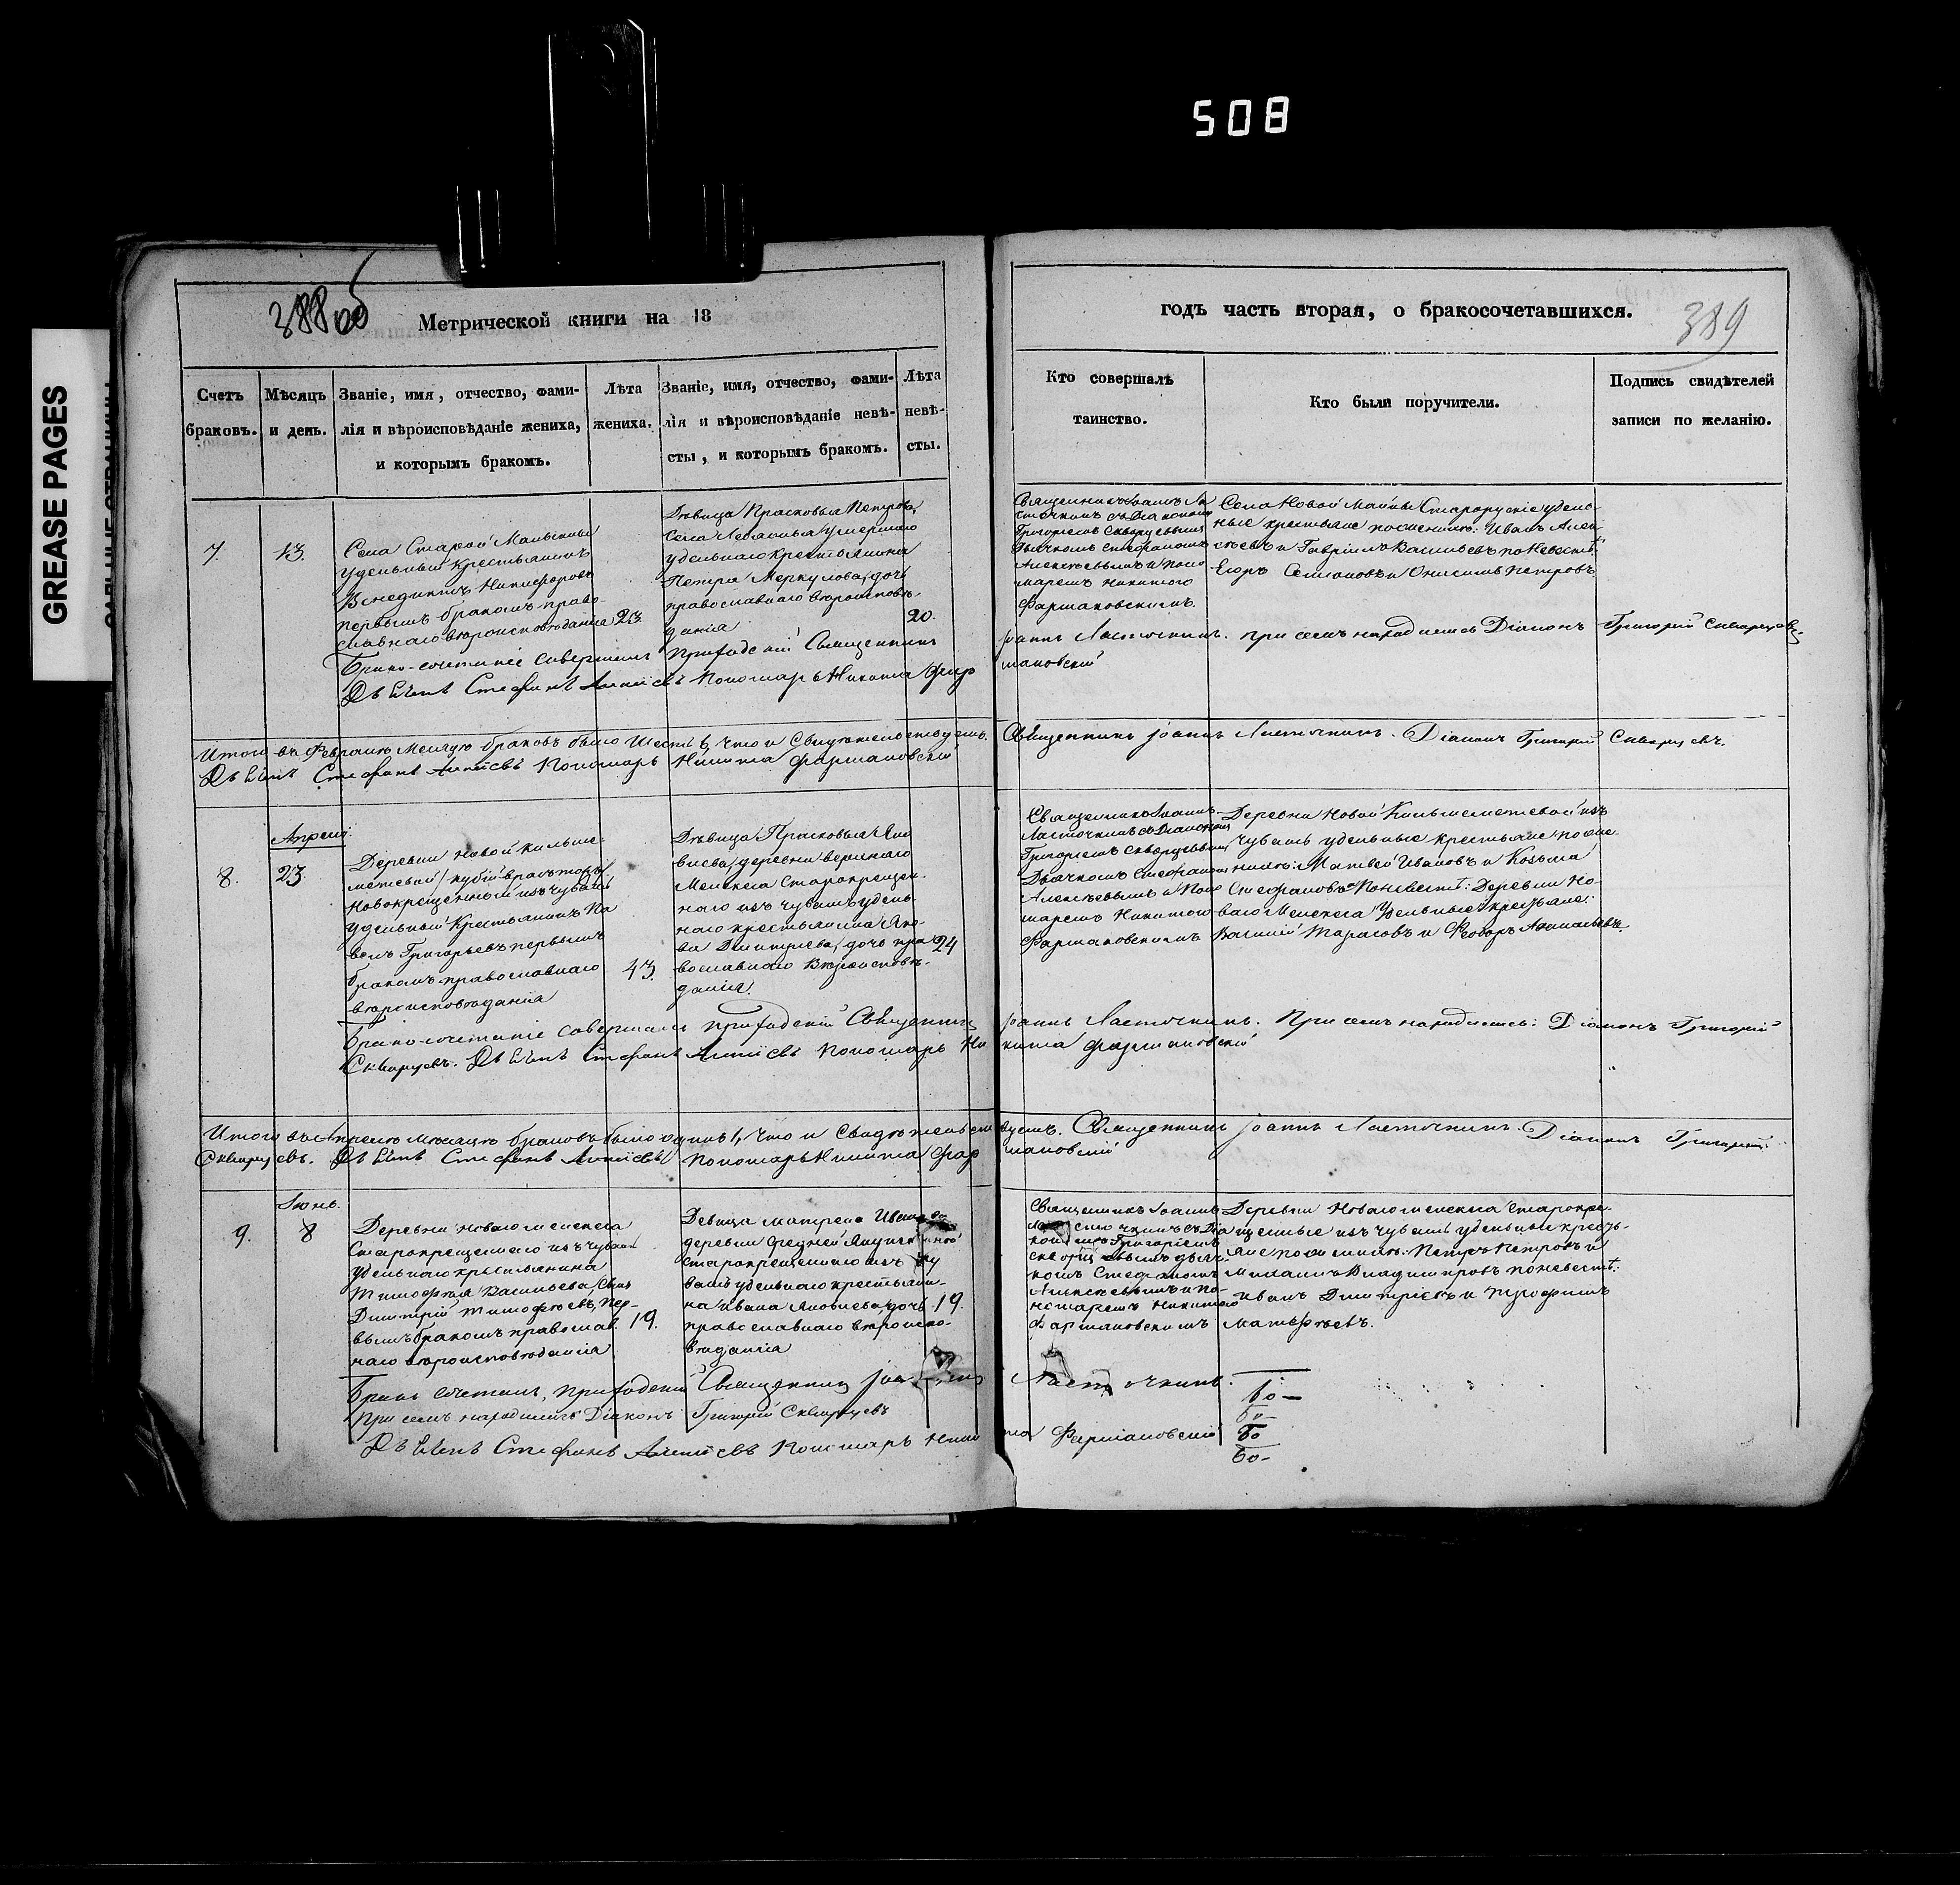 508
GREASE PAGES
388 об
Метрической книги на 18
годъ часть вторая, о бракосочетавшихся.
389
Счетъ браковъ.
Мѣсяцъ и день.
Званіе, имя, отчество, фами-
лія и вѣроисповѣданіе жениха,
и которымъ бракомъ.
Лѣта
жениха.
Званіе, имя, отчество, фами-
лія и вѣроисповѣданіе невѣ-
сты, и которымъ бракомъ.
Лѣта
невѣ-
сты.
Кто совершалъ
таинство.
Кто были поручители.
Подпись свидѣтелей
записи по желанію.
7.
13.
Села Старой
удельный крестьянинъ
Венедиктъ Никифоровъ
первымъ бракомъ право-
славнаго вѣроисповѣданія
23.
Дѣвица Прасковья Петрова,
села умершаго
удельнаго крестьянина
Петра Меркулова, дочь
православнаго вѣроисповѣ-
данія
20.
Священникъ Іоаннъ Ла
сточкинъ съ Діакономъ
Григоріемъ Скворцовымъ
Дьячкомъ Стефаномъ
Алексѣевымъ и поно
маремъ Никитою
Фармаковскимъ.
Села Новой Майны Старорускіе удель-
ные крестьяне по женихѣ: Иванъ Алек
сѣевъ и Гаврилъ Васильевъ по невестѣ:
Егоръ Семионовъ и Онисимъ Петровъ
Брако-сочетаніе совершилъ приходскій Священникъ
Іоаннъ Ласточкинъ. при семъ находились Діаконъ Григорій Скворцовъ,
Дьячекъ Стефанъ Алексіевъ Пономарь Никита Фар
маковскій
Итого въ Февралѣ Месяцѣ браковъ было шесть 6, что и Свидѣтельствуемъ.
Священникъ Іоаннъ Ласточкинъ. Діаконъ Григорій Скворцевъ.
Дьячекъ Стефанъ Алексіевъ Пономарь Никита Фармаковскій
8.
Апрель.
23.
Деревни Новой
Новокрещенный изъ чувашъ
удельный Крестьянинъ Па
велъ Григорьевъ первымъ
бракомъ православнаго
вѣроисповѣданія
43.
Дѣвица Прасковья Яко
влева, деревни верхняго
Мелекеса Старокрещен-
наго изъ чувашъ удель-
наго крестьянина Яко-
ва Дмитріева, дочь пра
вославнаго Вѣроисповѣ-
данія.
24
Священникъ Іоаннъ
Ласточкинъ съ Діакономъ
Григоріемъ Скворцовымъ
Дьячкомъ Стефаномъ
Алексѣевымъ и Поно
маремъ Никитою
Фармаковскимъ
Деревни Новой изъ
чувашъ удельные крестьяне по же-
нихѣ: Матвей Ивановъ и Козьма
Стефановъ Поневестѣ: Деревни Но-
ваго Мелекеса Удельные крестьяне:
Василій Тарасовъ и Феодоръ Афанасьевъ.
Брако-сочетаніе совершилъ приходскій Священникъ
Іоаннъ Ласточкинъ. При семъ находились: Діаконъ Григорій
Скворцевъ. Дьячекъ Стефанъ Алексіевъ Пономарь Ни
кита Фармаковскій
Итого въ Апрелѣ мѣсяцѣ браковъ было одинъ 1, что и Свидѣтельст
вуемъ. Священникъ Іоаннъ Ласточкинъ. Діаконъ Григорій
Скворцевъ. Дьячекъ Стефанъ Алексіевъ Пономарь Никита Фар
маковскій
9.
Іюнь.
8
Деревни Новаго мелекеса
Старокрещеннаго изъ чувашъ
удельнаго крестьянина
Тимофея Васильева, Сынъ
Димитрій Тимофеевъ, пер-
вымъ бракомъ православ
наго вѣроисповѣданія
19.
Девица матрена Иванова
деревни средней
Старокрещеннаго изъ чу
вашъ удельнаго крестьяни-
на Ивана Яковлева, дочь
православнаго вѣроиспо-
вѣданія
19.
Священникъ Іоаннъ
Ласточкинъ съ Діа
кономъ Григоріемъ
скворцовымъ дьяч-
комъ Стефаномъ
Алексѣевымъ и по-
номаремъ Никитою
Фармаковскимъ
Деревни Новаго мелекеса Старокре-
щенные изъ чувашъ удельные кресть-
яне по женихѣ: Петръ Петровъ и
Михаилъ Владимировъ по невестѣ:
Иванъ Дмитріевъ и Трофимъ
Матьфѣевъ.
Бракъ сочеталъ, приходскій Священникъ Іоаннъ Ласточкинъ.
При семъ находились Діаконъ Григорій Скворцевъ
Дьячекъ Стефанъ Алексіевъ Пономарь Никита Фармаковскій